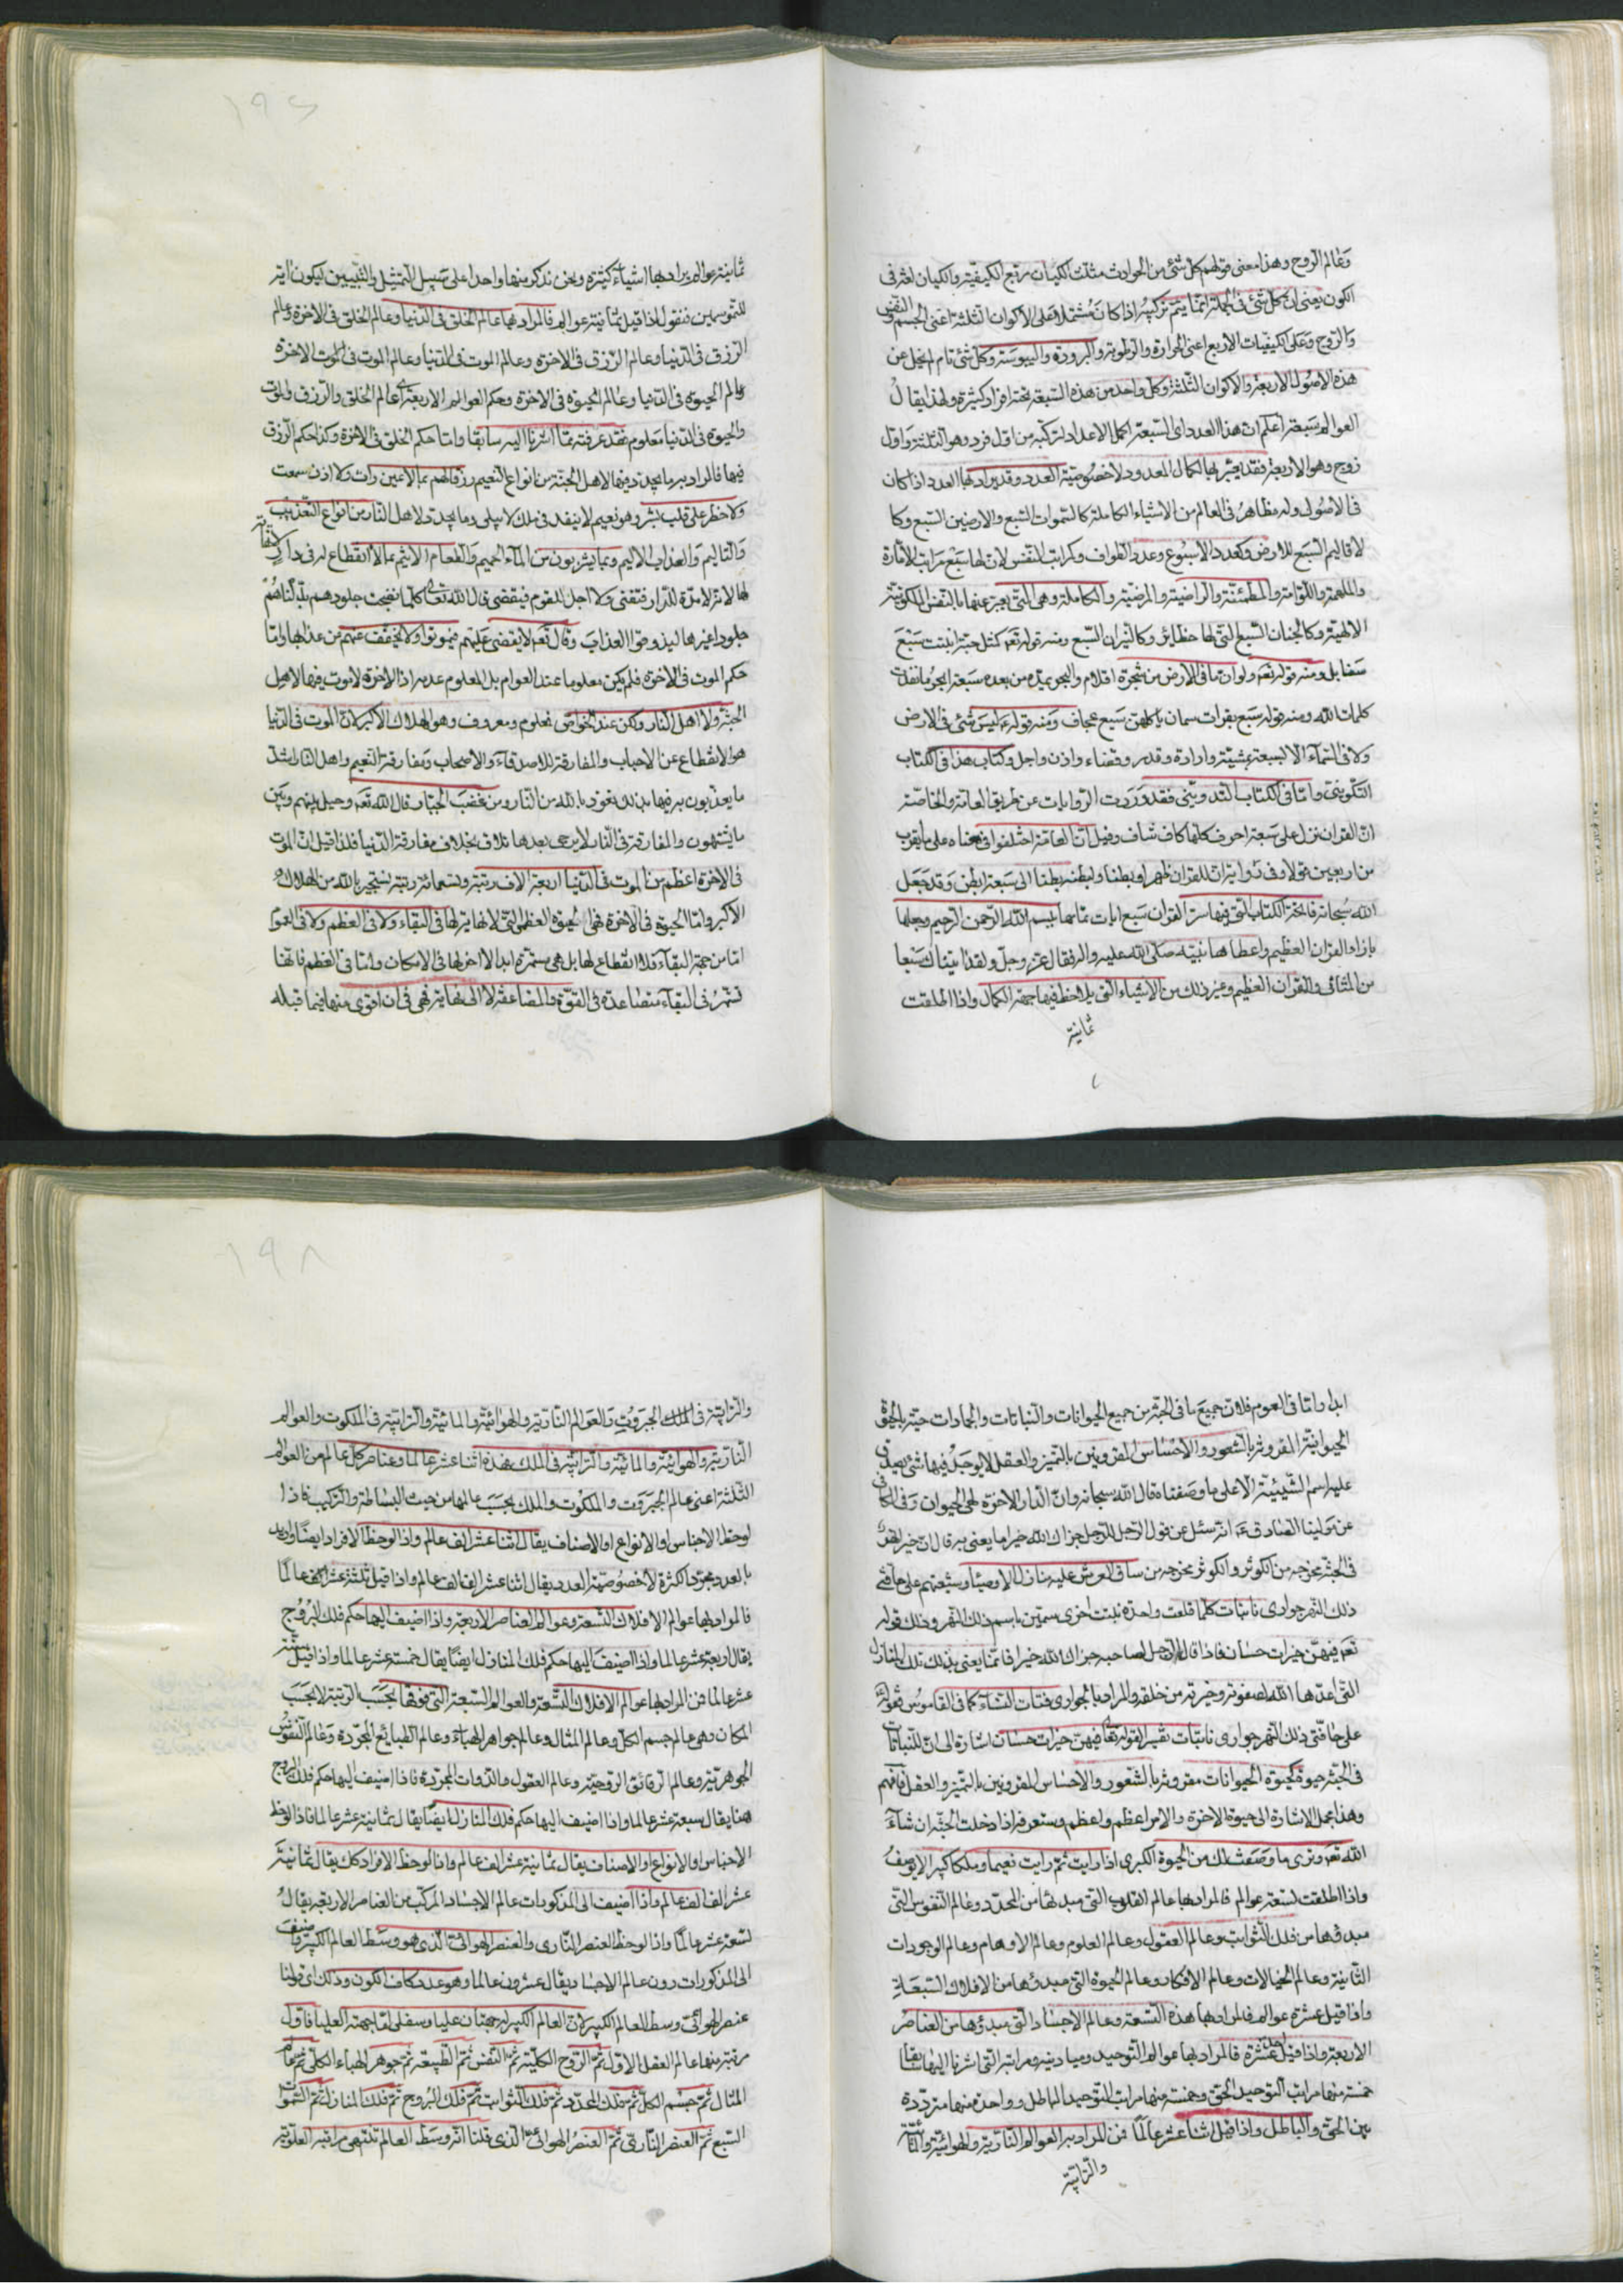 وعالم الروح وهذا معنى قولهم كل شئ من الحوادث مثلث الكيان مربع الكيفية والكيان لغة فى
الكون يعنى ان كل شئ فى الجملة انما يتم تركيبه اذا كان مشتملا على الاكوان الثلثة اعنى الجسم والنفس
والروح وعلى الكيفيات الاربع اعنى الحرارة والرطوبة والبرودة واليبوسة وكل شئ تام لم يخل عن
هذه الاصول الاربعة والاكوان الثلثة وكل واحد من هذه السبعة تحته افراد كثيرة ولهذا يقال
العوالم سبعة اعلم ان هذا العدد اى السبعة اكمل الاعداد لتركبه من اول فرد وهو الثلثة واول
زوج وهو الاربعة فقد يعبر بها لكمال المعدود لا خصوصية العدد وقد يراد بها العدد اذا كان
فى الاصول وله مظاهر فى العالم من الاشياء الكاملة كالسموات السبع والارضين السبع وكا
لاقاليم السبع للارض وكعدد الاسبوع وعدد الطواف وكمراتب النفس لان لها سبع مراتب الامارة
والملهمة واللوامة والمطمئنة والراضية والمرضية والكاملة وهى التى يعبر عنها بالنفس الملكوتية
الالهية وكالجنان السبع التى لها حظائر وكالنيران السبع ومنه قوله تعه كمثل حبة انبتت سبع
سنابل ومنه قوله تعه ولو ان ما فى الارض من شجرة اقلام والبحر يمده من بعده سبعة ابحر ما نفدت
كلمات الله ومنه قوله سبع بقرات سمان ياكلهن سبع عجاف ومنه قوله ع ليس شئ فى الارض
ولا فى السماء الا بسبعة بمشية وارادة وقدر وقضاء واذن واجل وكتاب هذا فى الكتاب
التكوينى واما فى الكتاب التدوينى فقد وردت الروايات عن طريق العامة والخاصة
ان القران نزل على سبعة احرف كلها كاف شاف وقيل ان العامة اختلفوا فى معناه على ما يقرب
من اربعين قولا وفى تواتر ان للقران ظهرا وبطنا ولبطنه بطنا الى سبعة ابطن وقد جعل
الله سبحانه فاتحة الكتاب التى فيها سر القران سبع ايات تمامها بسم الله الرحمن الرحيم وجعلها
بازاء القران العظيم واعطاها نبيه صلى الله عليه واله فقال عز وجل ولقد اتيناك سبعا
من المثانى والقران العظيم وغير ذلك من الاشياء التى يلاحظ فيها جهة الكمال واذا اطلقت
ثمانية
١٩٦
ثمانية عوالم يراد بها اشياء كثيرة ونحن نذكر منها واحدا على سبيل التمثيل والتبيين ليكون اية
للمتوسمين فنقول اذا قيل ثمانية عوالم فالمراد بها عالم الخلق فى الدنيا وعالم الخلق فى الاخرة وعالم
الرزق فى الدنيا وعالم الرزق فى الاخرة وعالم الموت فى الدنيا وعالم الموت فى الموت الاخرة
وعالم الحيوة فى الدنيا وعالم الحيوة فى الاخرة وحكم العوالم الاربعة اى عالم الخلق والرزق والموت
والحيوة فى الدنيا معلوم فقد عرفته مما اشرنا اليه سابقا واما حكم الخلق فى الاخرة وكذا حكم الرزق
فيها فالمراد به ما يتجدد فيها لاهل الجنة من انواع النعيم رزقا لهم بما لا عين رات ولا اذن سمعت
ولا خطر على قلب بشر وهو نعيم لا ينفد فى ملك لا يبلى وما يتجدد لاهل النار من انواع التعذيب
والتاليم والعذاب الاليم وما يشربون من الماء الحميم والطعام الاثيم بما لا انقطاع له فى دار لا فناء
لها لانه لا مدة للدار فتفنى ولا اجل للقوم فيقضى قال الله تعالى كلما نضجت جلودهم بدلناهم
جلودا غيرها ليذوقوا العذاب وقال تعه لا يقضى عليهم فيموتوا ولا يخفف عنهم من عذابها واما
حكم الموت فى الاخرة فلم يكن معلوما عند العوام بل المعلوم عدمه اذ الاخرة لا موت فيها لاهل
الجنة ولا اهل النار ولكن عند الخواص معلوم ومعروف وهو الهلاك الاكبر لان الموت فى الدنيا
هو الانقطاع عن الاحباب والمفارقة للاصدقاء والاصحاب ومفارقة النعيم واهل النار اشد
ما يعذبون به فيها بذلك نعوذ بالله من النار ومن غضب الجبار قال الله تعه وحيل بينهم وبين
ما يشتهون والمفارقة فى النار لا يرجى بعدها تلاق بخلاف مفارقة الدنيا فلذا قيل ان الموت
فى الاخرة اعظم من الموت فى الدنيا اربعة الاف رتبة وتسعمائة رتبة نستجير بالله من الهلاك
الاكبر واما الحيوة فى الاخرة فهى الحيوة العظمى التى لا نهاية لها فى البقاء ولا فى العظم ولا فى العموم
اما من جهة البقاء فلا انقطاع لها بل هى مستمرة ابدا لا اخر لها فى الامكان واما فى العظم فانها
تستمر فى البقاء متصاعدة فى القوة والمضاعفة لا الى نهاية فهى فى ان اقوى منها فيما قبله
ابدا واما فى العموم فلان جميع ما فى الجنة من جميع الحيوانات والنباتات والجمادات حية بالحيوة
الحيوانية المقرونة بالشعور والاحساس المقرونين بالتميز والعقل لا يوجد فيها شئ يصدق
عليه اسم الشيئية الا على ما وصفناه قال الله سبحانه وان الدار الاخرة لهى الحيوان وفى الكافى
عن مولينا الصادق ع انه سئل عن قول الرجل للرجل جزاك الله خيرا ما يعنى به قال ان خيرا نهر
فى الجنة مخرجه من الكوثر والكوثر مخرجه من ساق العرش عليه منازل الاوصياء وشيعتهم على حافتى
ذلك النهر جوارى نابتات كلما قلعت واحدة نبتت اخرى سمين باسم ذلك النهر وذلك قوله
تعه فيهن خيرات حسان فاذا قال الرجل لصاحبه جزاك الله خيرا فانما يعنى بذلك تلك المنازل
التى اعدها الله لصفوته وخيرته من خلقه والمراد بالجوارى فتيات النساء كما فى القاموس فقوله
على حافتى ذلك النهر جوارى نابتات تفسير لقوله تعالى فيهن خيرات حسان اشارة الى ان للنباتات
فى الجنة حيوة كحيوة الحيوانات مقرونة بالشعور والاحساس المقرونين بالتميز والعقل فافهم
وهذا مجمل الاشارة الى حيوة الاخرة والامر اعظم واعظم وستعرفه اذا دخلت الجنة ان شاء
الله تعه وترى ما وصفت لك من الحيوة الكبرى اذا رايت ثم رايت نعيما وملكا كبيرا لا يوصف
واذا اطلقت تسعة عوالم فالمراد بها عالم القلوب التى مبدئها من المحدد وعالم النفوس التى
مبدؤها من فلك الثوابت وعالم العقول وعالم العلوم وعالم الاوهام وعالم الوجودات
الثانية وعالم الخيالات وعالم الافكار وعالم الحيوة التى مبدؤها من الافلاك السبعة
واذا قيل عشرة عوالم فالمراد بها هذه التسعة وعالم الاجساد التى مبدؤها من العناصر
الاربعة واذا قيل احد عشرة فالمراد بها عوالم التوحيد وميادينه ومراتبه التى اشرنا اليها سابقا
خمسة منها مراتب التوحيد الحق وخمسة منها مراتب التوحيد الباطل وواحدة منها مترددة
بين الحق والباطل واذا قيل اثنا عشر عالما فمن المراد به العوالم النارية والهوائية والمائية
والترابية
١٩٨
والترابية فى الملك الجبروت والعوالم النارية والهوائية والمائية والترابية فى الملكوت والعوالم
النارية والهوائية والمائية والترابية فى الملك فهذه اثنا عشر عالما وعناصر كل عالم من العوالم
الثلثة اعنى عالم الجبروت والملكوت والملك بحسب عالمها من حيث البساطة والتركيب فاذا
لوحظ الاجناس او الانواع او الاصناف يقال اثنا عشر الف عالم واذا لوحظ الافراد ايضا واريد
بالعدد مجرد الكثرة لا خصوصية العدد يقال اثنا عشر الف الف عالم واذا قيل ثلثة عشر الف عالما
فالمراد بها عوالم الافلاك التسعة وعوالم العناصر الاربعة واذا اضيف اليها حكم فلك البروج
يقال اربعة عشر عالما واذا اضيف اليها حكم فلك المنازل ايضا يقال خمسة عشر عالما واذا قيل ستة
عشر عالما فمن المراد بها عوالم الافلاك التسعة والعوالم السبعة التى فوقها بحسب الرتبة لا بحسب
المكان وهى عالم جسم الكل وعالم المثال وعالم جواهر الهباء وعالم الطبايع المجردة وعالم النفوس
الجوهرية وعالم الرقائق الروحية وعالم العقول والذوات المجردة فاذا اضيف اليها حكم فلك البروج
هنا يقال سبعة عشر عالما واذا اضيف اليها حكم فلك المنازل ايضا يقال ثمانية عشر عالما فاذا لوحظ
الاجناس او الانواع او الاصناف يقال ثمانية عشر الف عالم واذا لوحظ الافراد كك يقال ثمانية
عشر الف الف عالم واذا اضيف الى المذكورات عالم الاجساد المركب من العناصر الاربعة يقال
تسعة عشر عالما واذا لوحظ العنصر النارى والعنصر الهوائى الذى هو وسط العالم الكبير واضيف
الى المذكورات دون عالم الاجساد يقال عشرون عالما وهو عدد كاف الكون وذلك اى قولنا
عنصر الهوائى وسط للعالم الكبير لان العالم الكبير له جهتان عليا وسفلى اما جهته العليا فاول
مرتبة منها عالم العقل الاول ثم الروح الكلية ثم النفس ثم الطبيعة ثم جوهر الهباء الكلى ثم عالم
المثال ثم جسم الكل ثم فلك المحدد ثم فلك الثوابت ثم فلك البروج ثم فلك المنازل ثم السموات
السبع ثم العنصر النارى ثم العنصر الهوائى الذى قلنا انه وسط العالم تنتهى مراتبه العلوية